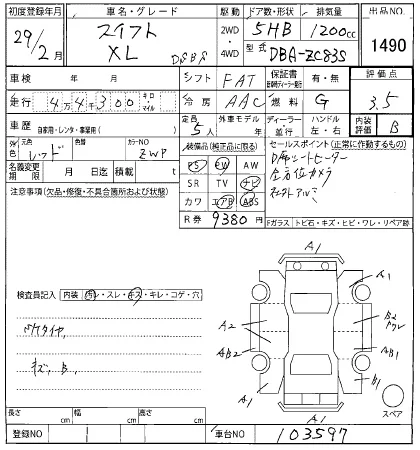 初度登録年月 車名・グレード 駆動 ドア数・形状 排気量 出品NO.
29/2月 スイフト 2WD・4WD 5HB 1200cc 1490
XL DSBS 型式 DBA-ZC83S
車検 年 月 シフト FAT 保証書 有・無 評価点
走行 4万4千300 キロ・マイル 冷房 AAC 燃料 G 3.5
車歴 自家用・レンタ・事業用( ) 定員 5人 外車モデル 年 ディーラー・並行 ハンドル 左・右 内装評価 B
外色 元色 レッド 色替 カラーNO ZWP 装備品(純正品に限る) セールスポイント(正常に作動するもの)
名義変更期限 月 日迄 積載 t PS PW AW D席シートヒーター
注意事項(欠品・修復・不具合箇所および状態) SR TV ナビ 全方位カメラ
カワ エアB ABS 社外アルミ
R券 9380円
Fガラス トビ石・キズ・ヒビ・ワレ・リペア跡
A1
A1
検査員記入 内装 汚レ・スレ・キズ・キレ・コゲ・穴
A2 B2
AB2 AB1
キズ、B、
A1 B1
A1 スペア
長さ cm 幅 cm 高さ cm
登録NO 車台NO 103597